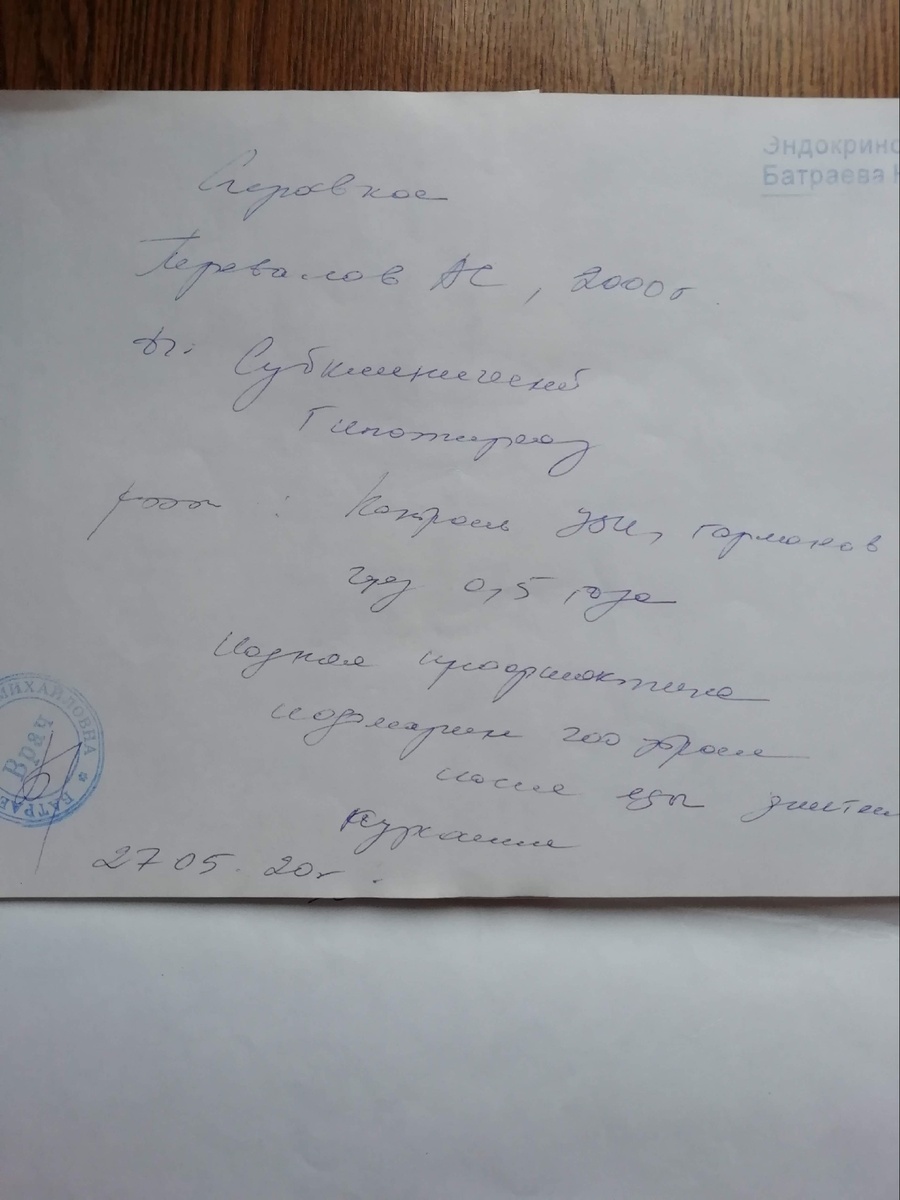 Эндокрино
Батраева Н
Справка
Перевалов АС, 2000г.
Ds: Субклинический
Гипотиреоз
реком: Контроль УЗИ, гормонов
чрз 0,5 года
Йодная профилактика
йодомарин 200
после еды длител
курсами
27 05. 20г.
МИХАЙЛОВНА * БАТРАЕ
Врач